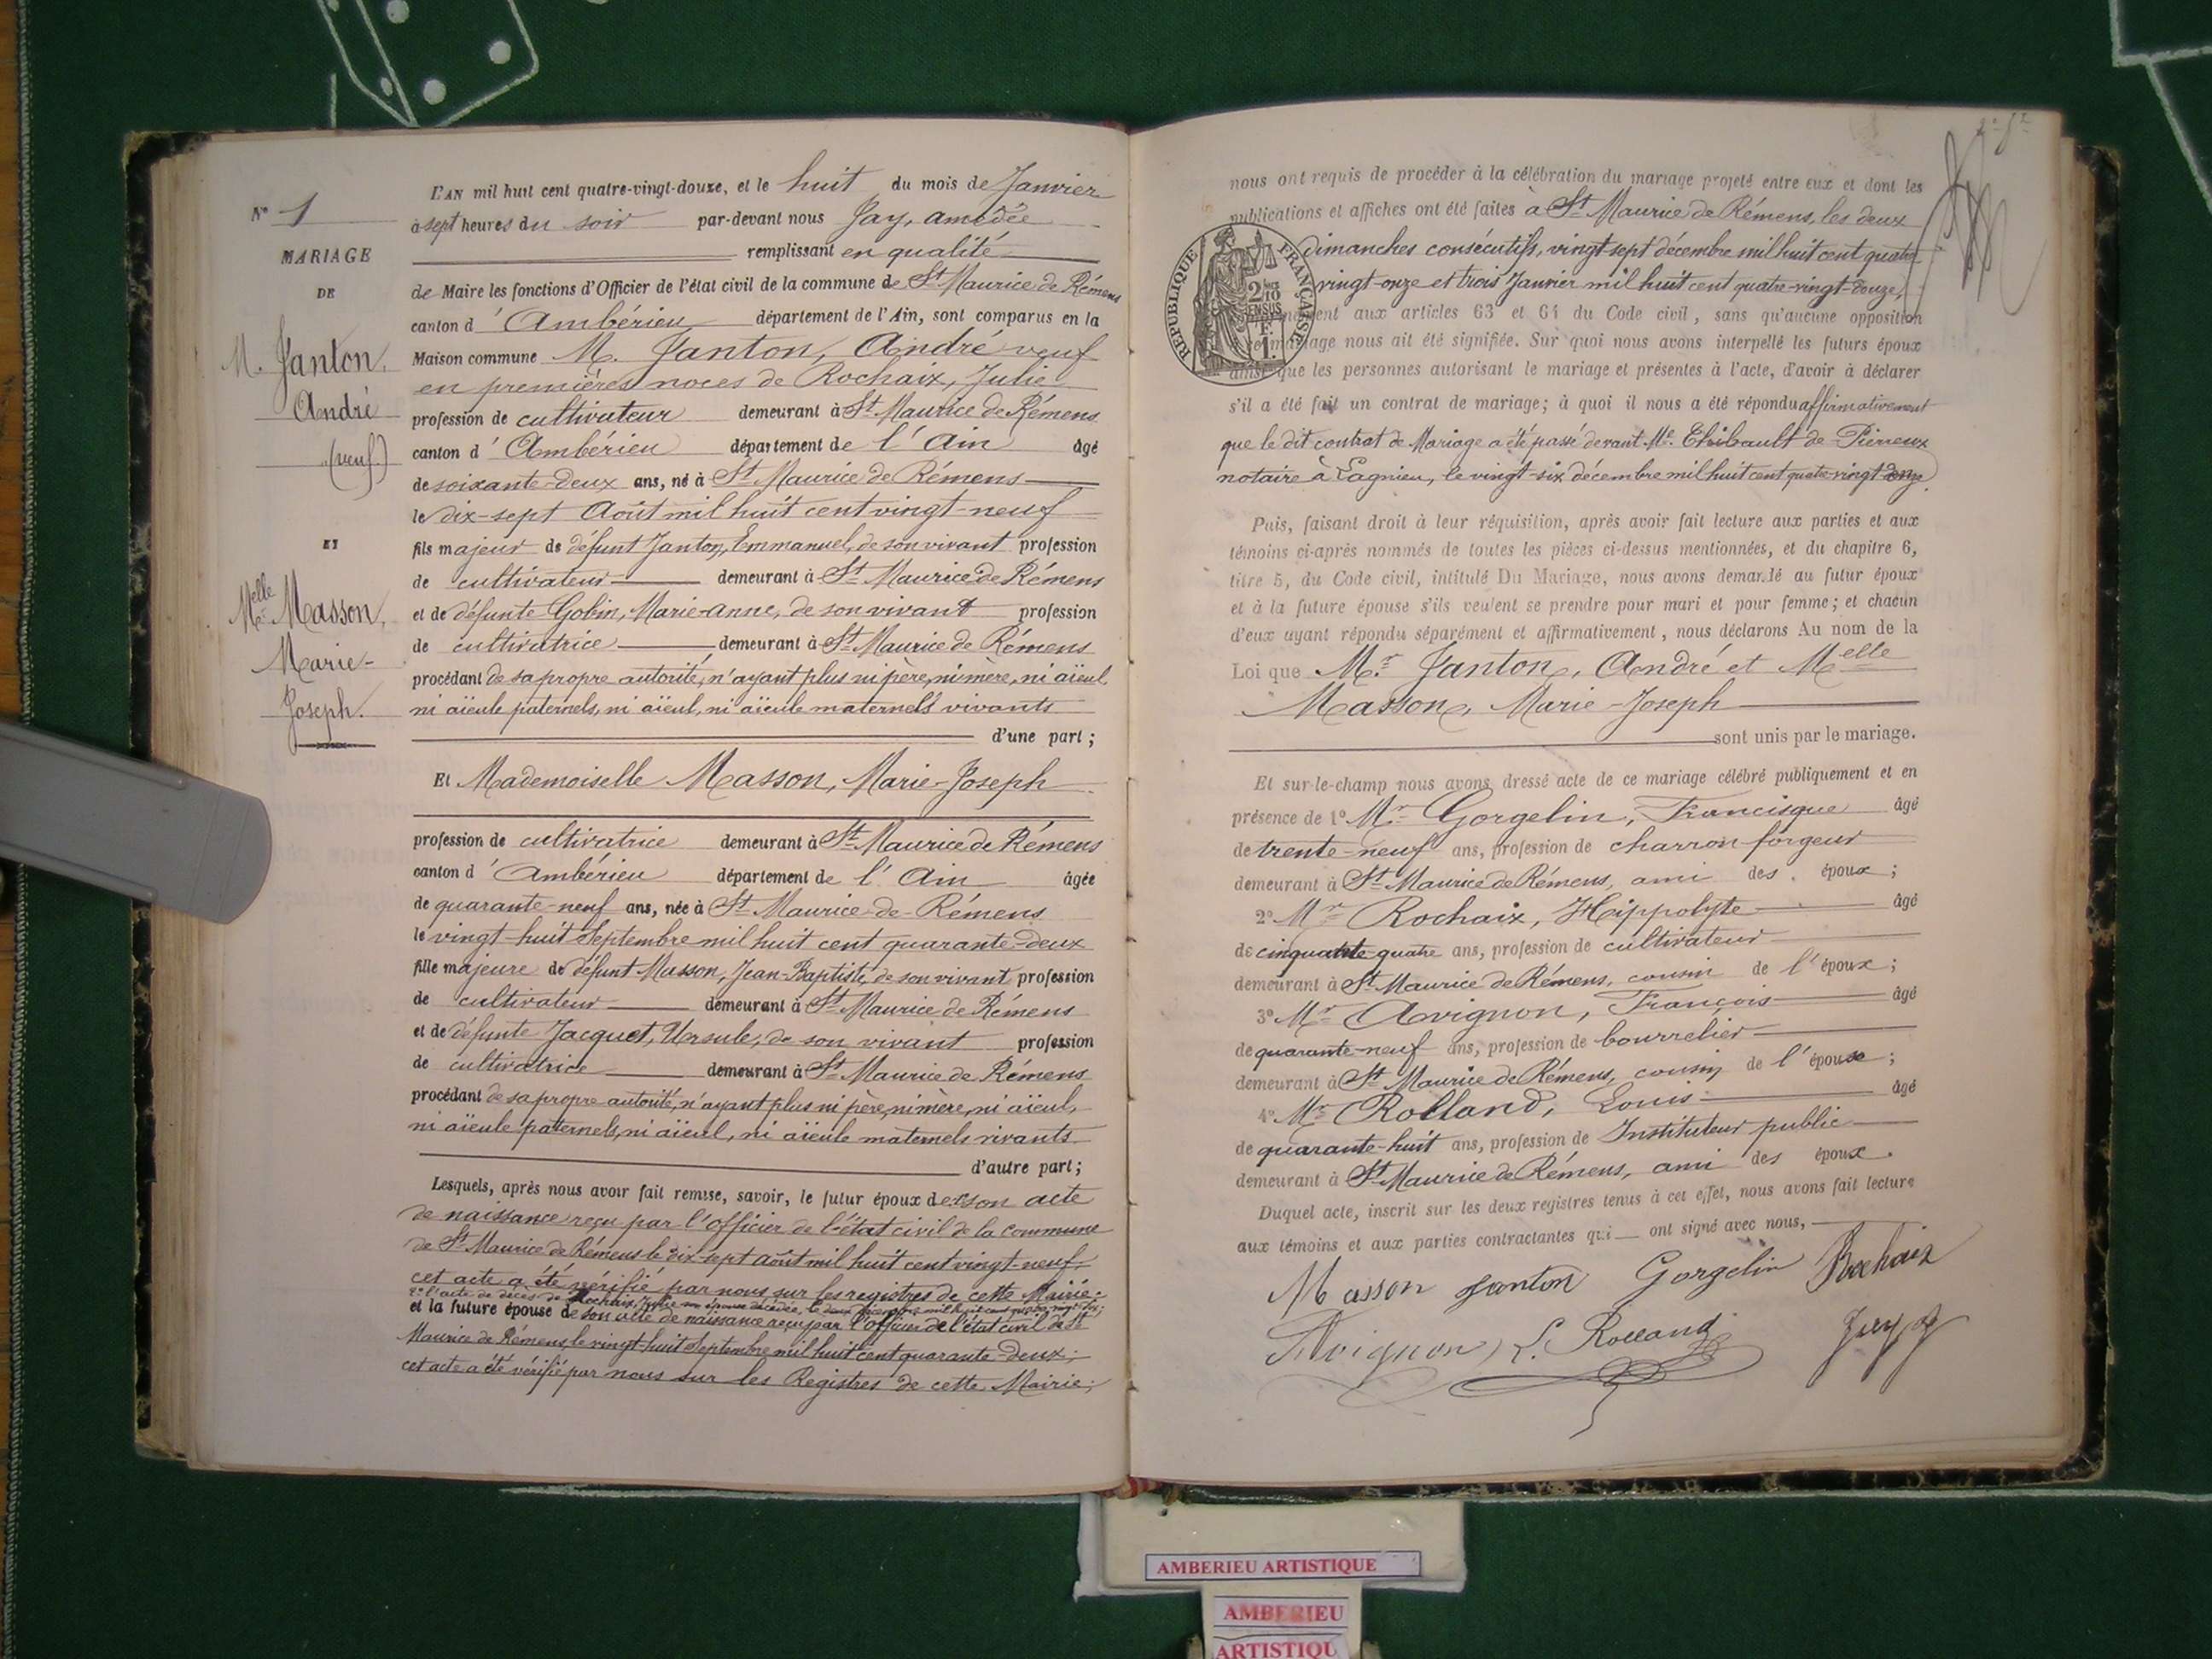 N° 1
MARIAGE
DE
M. Janton,
André
(veuf)
ET
Melle Masson,
Marie-
Joseph.
L'AN mil huit cent quatre-vingt-douze, et le huit du mois de Janvier
à sept heures du soir par-devant nous Jay, Amédée
remplissant en qualité
de Maire les fonctions d'Officier de l'état civil de la commune de St Maurice de Rémens
canton d'Ambérieu département de l'Ain, sont comparus en la
Maison commune M. Janton, André veuf
en premières noces de Rochaix, Julie
profession de cultivateur demeurant à St Maurice de Rémens
canton d'Ambérieu département de l'Ain âgé
de soixante-deux ans, né à St Maurice de Rémens
le dix-sept Août mil huit cent vingt-neuf
fils majeur de défunt Janton, Emmanuel, de son vivant profession
de cultivateur demeurant à St Maurice de Rémens
et de défunte Gobin, Marie-Anne, de son vivant profession
de cultivatrice demeurant à St Maurice de Rémens
procédant de sa propre autorité, n'ayant plus ni père, ni mère, ni aïeul,
ni aïeule paternels, ni aïeul, ni aïeule maternels vivants
d'une part ;
Et Mademoiselle Masson, Marie-Joseph
profession de cultivatrice demeurant à St Maurice de Rémens
canton d'Ambérieu département de l'Ain âgée
de quarante-neuf ans, née à St Maurice-de-Rémens
le vingt-huit Septembre mil huit cent quarante-deux
fille majeure de défunt Masson, Jean-Baptiste, de son vivant profession
de cultivateur demeurant à St Maurice de Rémens
et de défunte Jacquet, Ursule, de son vivant profession
de cultivatrice demeurant à St Maurice de Rémens
procédant de sa propre autorité, n'ayant plus ni père, ni mère, ni aïeul,
ni aïeule paternels, ni aïeul, ni aïeule maternels vivants
d'autre part ;
Lesquels, après nous avoir fait remise, savoir, le futur époux de son acte
de naissance reçu par l'officier de l'état civil de la commune
de St Maurice de Rémens le dix-sept août mil huit cent vingt-neuf;
cet acte a été vérifié par nous sur les registres de cette Mairie;
2° l'acte de décès de Rochaix, Julie son épouse décédée, le deux décembre mil huit cent quatre-vingt-dix;
et la future épouse de son acte de naissance reçu par l'officier de l'état civil de St
Maurice de Rémens, le vingt-huit Septembre mil huit cent quarante-deux;
cet acte a été vérifié par nous sur les Registres de cette Mairie;
nous ont requis de procéder à la célébration du mariage projeté entre eux et dont les
publications et affiches ont été faites à St Maurice de Rémens, les deux
dimanches consécutifs, vingt-sept décembre mil huit cent quatre-
vingt-onze et trois Janvier mil huit cent quatre-vingt-douze,
aux articles 63 et 64 du Code civil, sans qu'aucune opposition
mariage nous ait été signifiée. Sur quoi nous avons interpellé les futurs époux
ainsi que les personnes autorisant le mariage et présentes à l'acte, d'avoir à déclarer
s'il a été fait un contrat de mariage ; à quoi il nous a été répondu affirmativement
que le dit contrat de Mariage a été passé devant Me Thibault de Pierreux
notaire à Lagnieu, le vingt-six décembre mil huit cent quatre-vingt-onze.
RÉPUBLIQUE FRANÇAISE
2/10 EN SUS
F.
1.
Puis, faisant droit à leur réquisition, après avoir fait lecture aux parties et aux
témoins ci-après nommés de toutes les pièces ci-dessus mentionnées, et du chapitre 6,
titre 5, du Code civil, intitulé Du Mariage, nous avons demandé au futur époux
et à la future épouse s'ils veulent se prendre pour mari et pour femme ; et chacun
d'eux ayant répondu séparément et affirmativement, nous déclarons Au nom de la
Loi que Mr Janton, André et Melle
Masson, Marie-Joseph
sont unis par le mariage.
Et sur-le-champ nous avons dressé acte de ce mariage célébré publiquement et en
présence de 1° Mr Gorgelin, Francisque âgé
de trente-neuf ans, profession de charron forgeur
demeurant à St Maurice de Rémens, ami des époux ;
2° Mr Rochaix, Hippolyte âgé
de cinquante-quatre ans, profession de cultivateur
demeurant à St Maurice de Rémens, cousin de l'époux ;
3° Mr Avignon, François âgé
de quarante-neuf ans, profession de bourrelier
demeurant à St Maurice de Rémens, cousin de l'épouse ;
4° Mr Rolland, Louis âgé
de quarante-huit ans, profession de Instituteur public
demeurant à St Maurice de Rémens, ami des époux.
Duquel acte, inscrit sur les deux registres tenus à cet effet, nous avons fait lecture
aux témoins et aux parties contractantes qui ont signé avec nous,
Masson Janton Gorgelin Rochaix
Avignon L. Rolland Jay
AMBERIEU ARTISTIQUE
AMBERIEU
ARTISTIQU